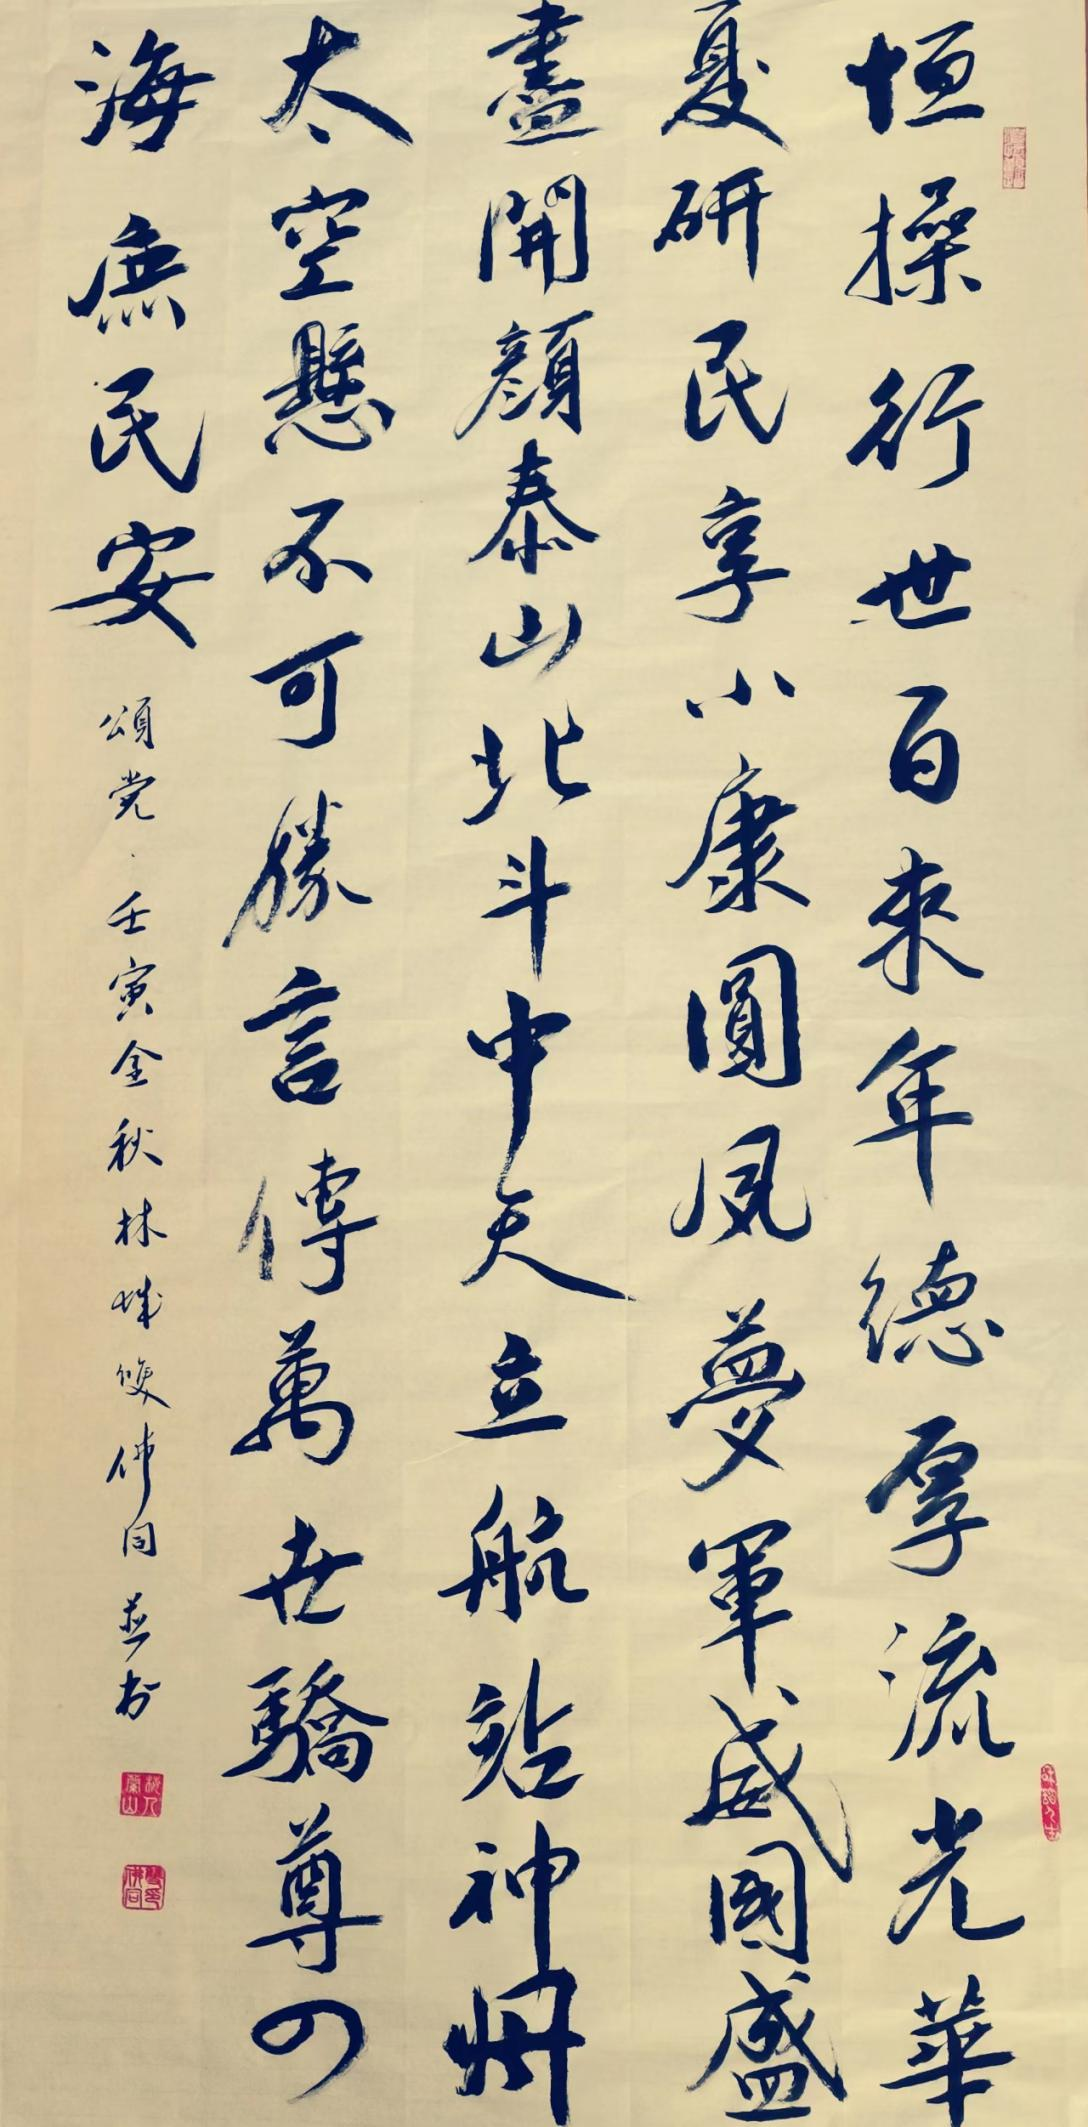 恒操行世百來年德厚流光華
夏研民享小康圓夙夢軍威國盛
盡開顏泰山北斗中天立航站神州
太空懸不可勝言傳萬世驕尊四
海庶民安
頌党壬寅金秋林城雙佛同並書